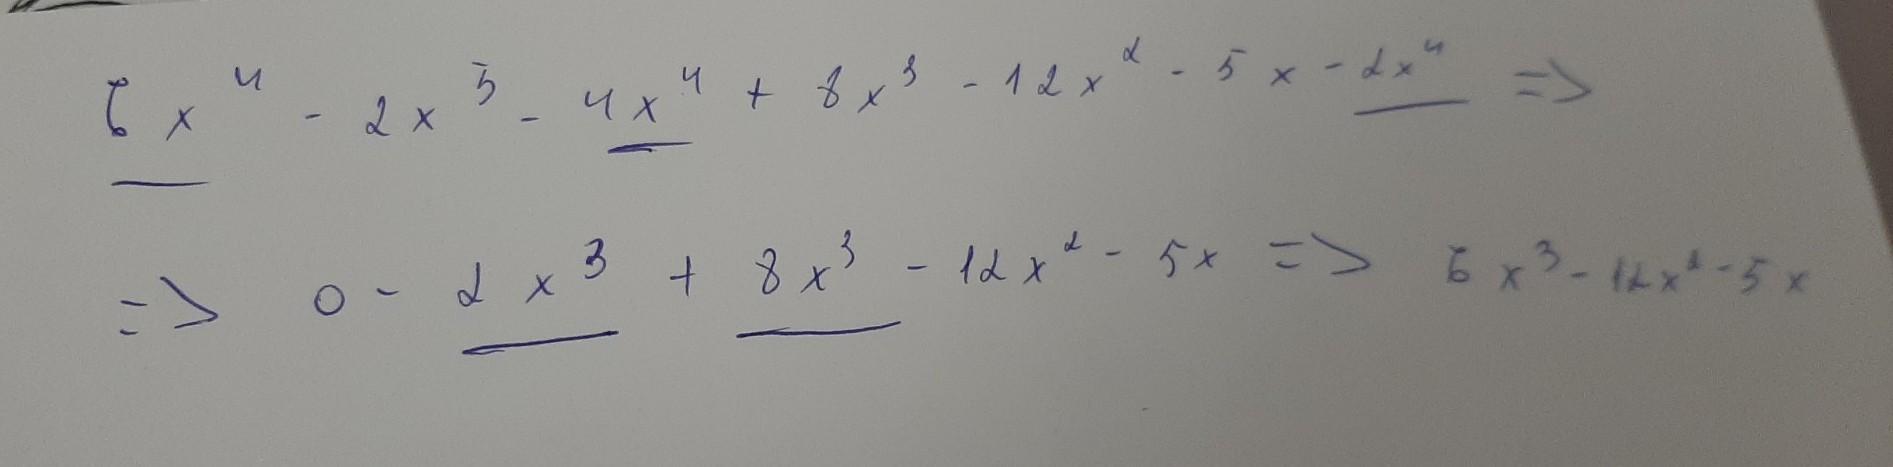 6x⁴ - 2x³ - 4x⁴ + 8x³ - 12x² - 5x - 2x⁴ =>
=> 0 - 2x³ + 8x³ - 12x² - 5x => 6x³ - 12x² - 5x